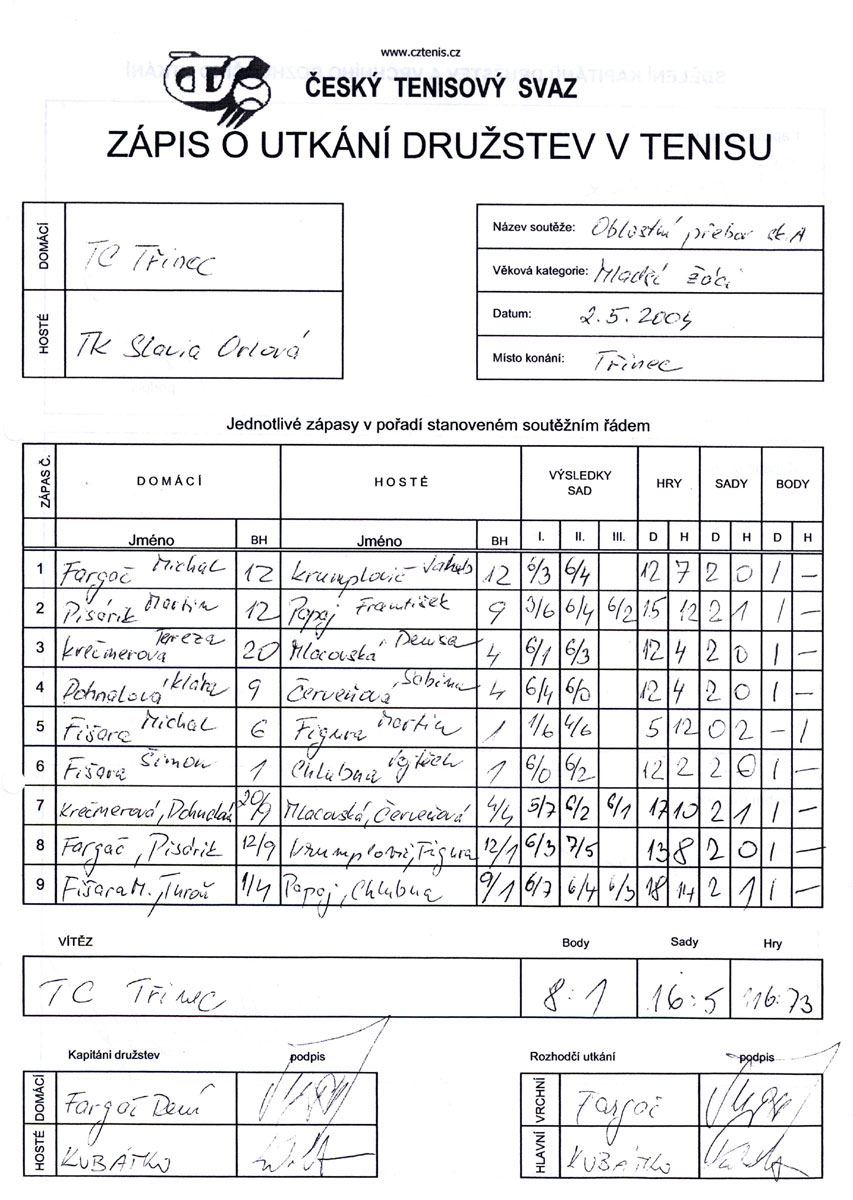 www.cztenis.cz
ČESKÝ TENISOVÝ SVAZ
ZÁPIS O UTKÁNÍ DRUŽSTEV V TENISU
DOMÁCÍ TC Třinec
HOSTÉ TK Slavia Orlová
Název soutěže: Oblastní přebor sk. A
Věková kategorie: Mladší žáci
Datum: 2.5.2004
Místo konání: Třinec
Jednotlivé zápasy v pořadí stanoveném soutěžním řádem
ZÁPAS Č. DOMÁCÍ HOSTÉ VÝSLEDKY SAD HRY SADY BODY
Jméno BH Jméno BH I. II. III. D H D H D H
1 Fargač Michal 12 Krumplovič Jakub 12 6/3 6/4 12 7 2 0 1 –
2 Pisárik Martin 12 Papaj František 9 3/6 6/4 6/2 15 12 2 1 1 –
3 Krečmerová Tereza 20 Mlacovská Denisa 4 6/1 6/3 12 4 2 0 1 –
4 Dohnalová Klára 9 Červeňová Sabina 4 6/4 6/0 12 4 2 0 1 –
5 Fišara Michal 6 Figura Martin 1 1/6 4/6 5 12 0 2 – 1
6 Fišara Šimon 1 Chlubna Vojtěch 1 6/0 6/2 12 2 2 0 1 –
7 Krečmerová, Dohnalová 20/9 Mlacovská, Červeňová 4/4 5/7 6/2 6/1 17 10 2 1 1 –
8 Fargač, Pisárik 12/9 Krumplovič, Figura 12/1 6/3 7/5 13 8 2 0 1 –
9 Fišara M., Turoň 1/4 Papaj, Chlubna 9/1 6/7 6/4 6/3 18 14 2 1 1 –
VÍTĚZ Body Sady Hry
TC Třinec 8:1 16:5 116:73
Kapitáni družstev podpis Rozhodčí utkání podpis
DOMÁCÍ Fargač VRCHNÍ Fargač
HOSTÉ KUBÁTKO HLAVNÍ KUBÁTKO